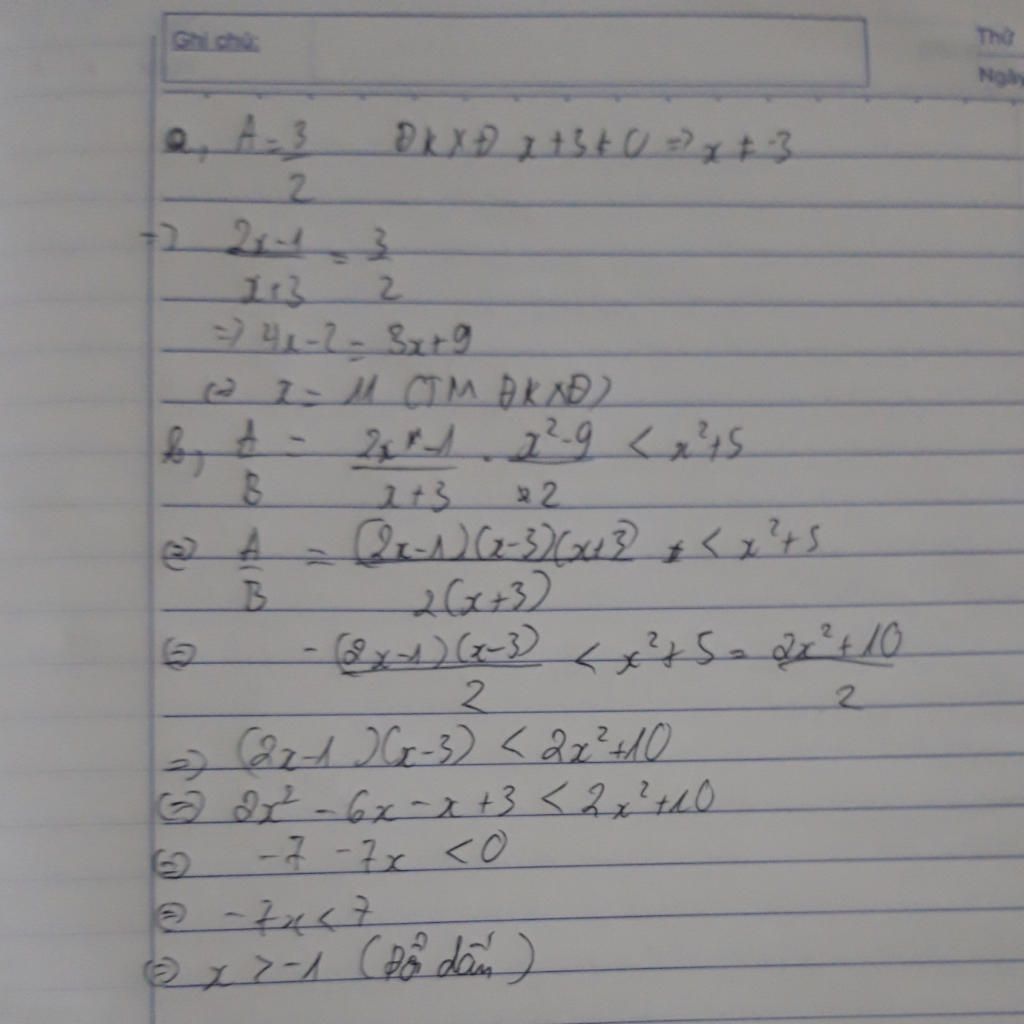 Ghi chú:
Thứ
Ngày
a, A = 3/2 ĐKXĐ x+3≠0 => x ≠ -3
=> (2x-1)/(x+3) = 3/2
=> 4x-2 = 3x+9
<=> x = 11 (TM ĐKXĐ)
b, A/B = (2x-1)/(x+3) . (x²-9)/2 < x²+5
<=> A/B = (2x-1)(x-3)(x+3)/2(x+3) < x²+5
<=> - (2x-1)(x-3)/2 < x²+5 = (2x²+10)/2
=> (2x-1)(x-3) < 2x²+10
<=> 2x² - 6x - x + 3 < 2x²+10
<=> -7 - 7x < 0
<=> -7x < 7
<=> x > -1 (Đổi dấu)